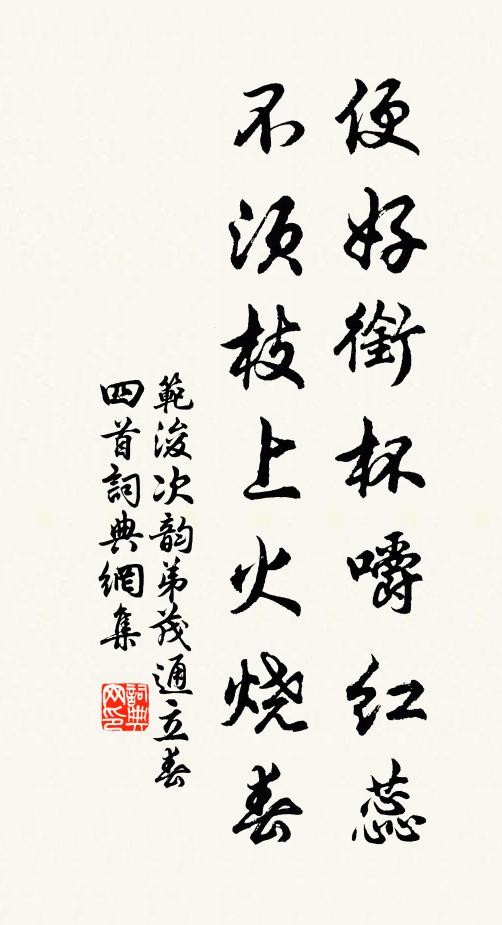 便好銜杯嚼红蕊
不须枝上火烧春
範浚次韵弟茂通立春
四首詞典網集
詞典网印